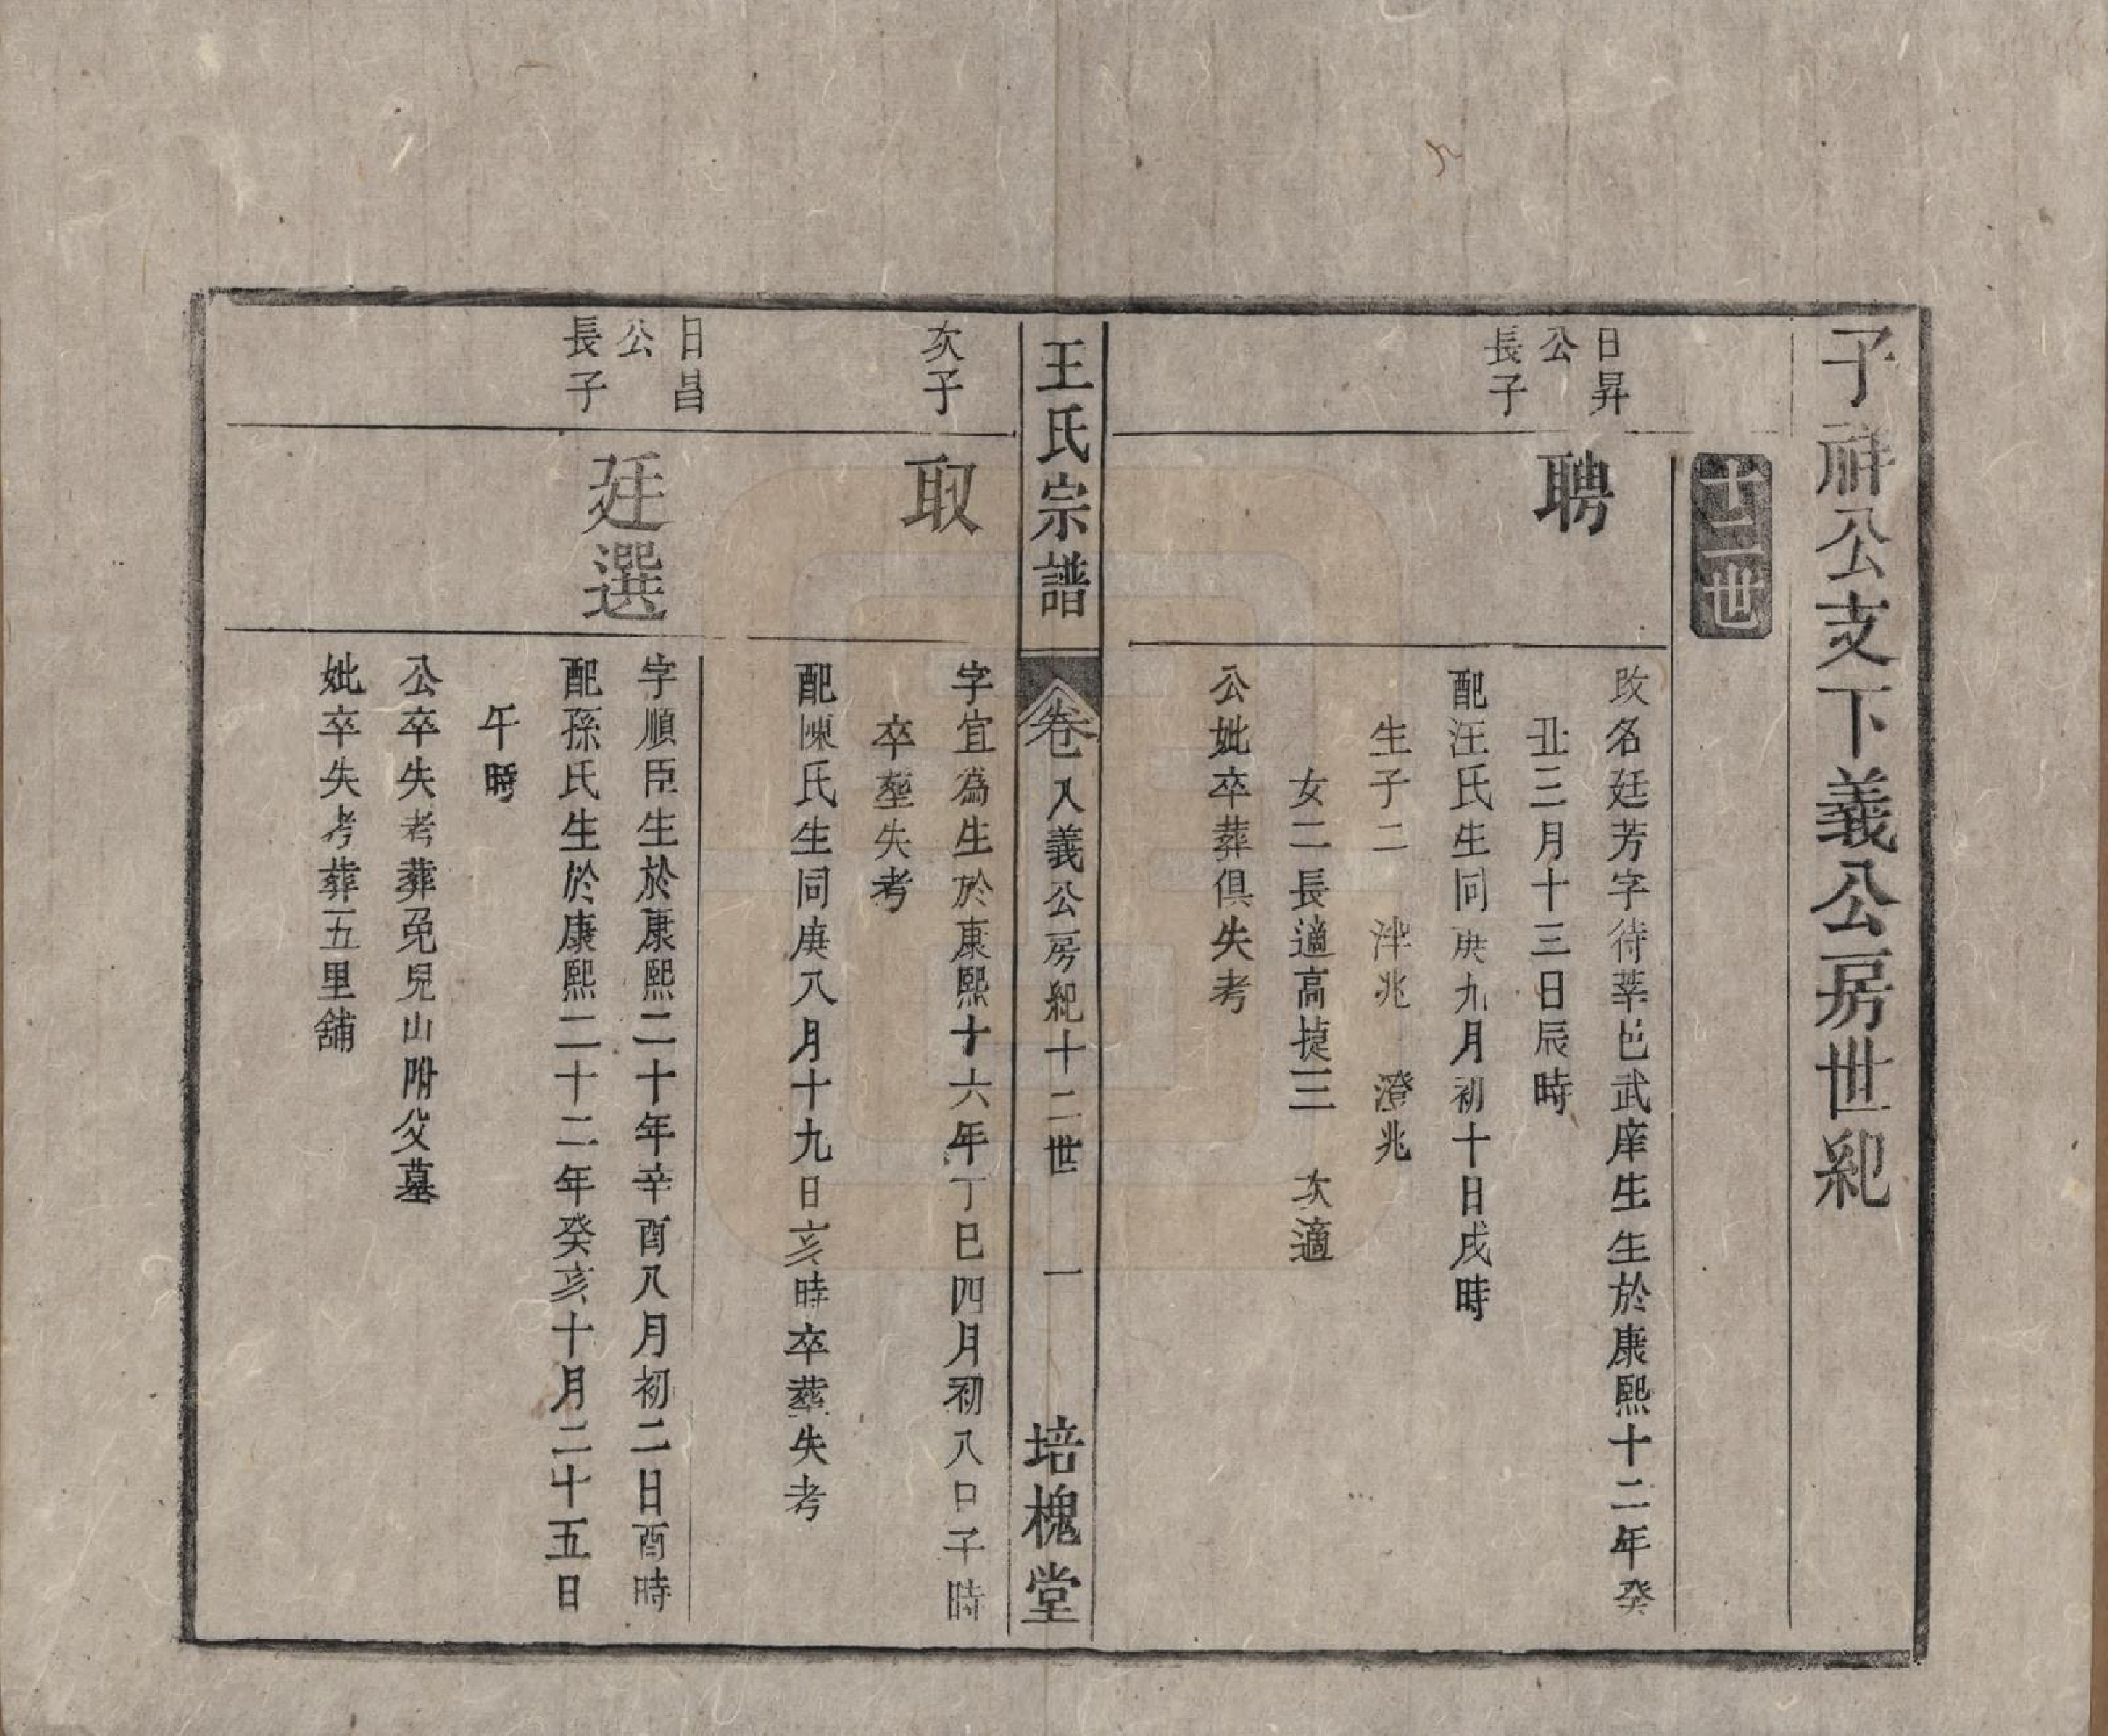 子祥公支下義公房世紀
十二世
日昇
公
長子
聘
改名廷芳字待莘邑武庠生生於康熙十二年癸
丑三月十三日辰時
配汪氏生同庚九月初十日戌時
生子二 泮兆 澄兆
女二長適高捷三 次適
公妣卒葬俱失考
王氏宗譜 卷八義公房紀十二世 一 培槐堂
次子
取
字宜為生於康熙十六年丁巳四月初八日子時
卒塟失考
配陳氏生同庚八月十九日亥時卒葬失考
日昌
公
長子
廷選
字順臣生於康熙二十年辛酉八月初二日酉時
配孫氏生於康熙二十二年癸亥十月二十五日
午時
公卒失考葬兎兒山附父墓
妣卒失考葬五里舖